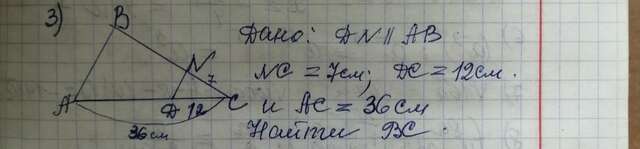 3)
B
N
7
A
D 12 C
36 см
Дано: DN || AB
NC = 7см; DC = 12см.
и AC = 36см
Найти BC